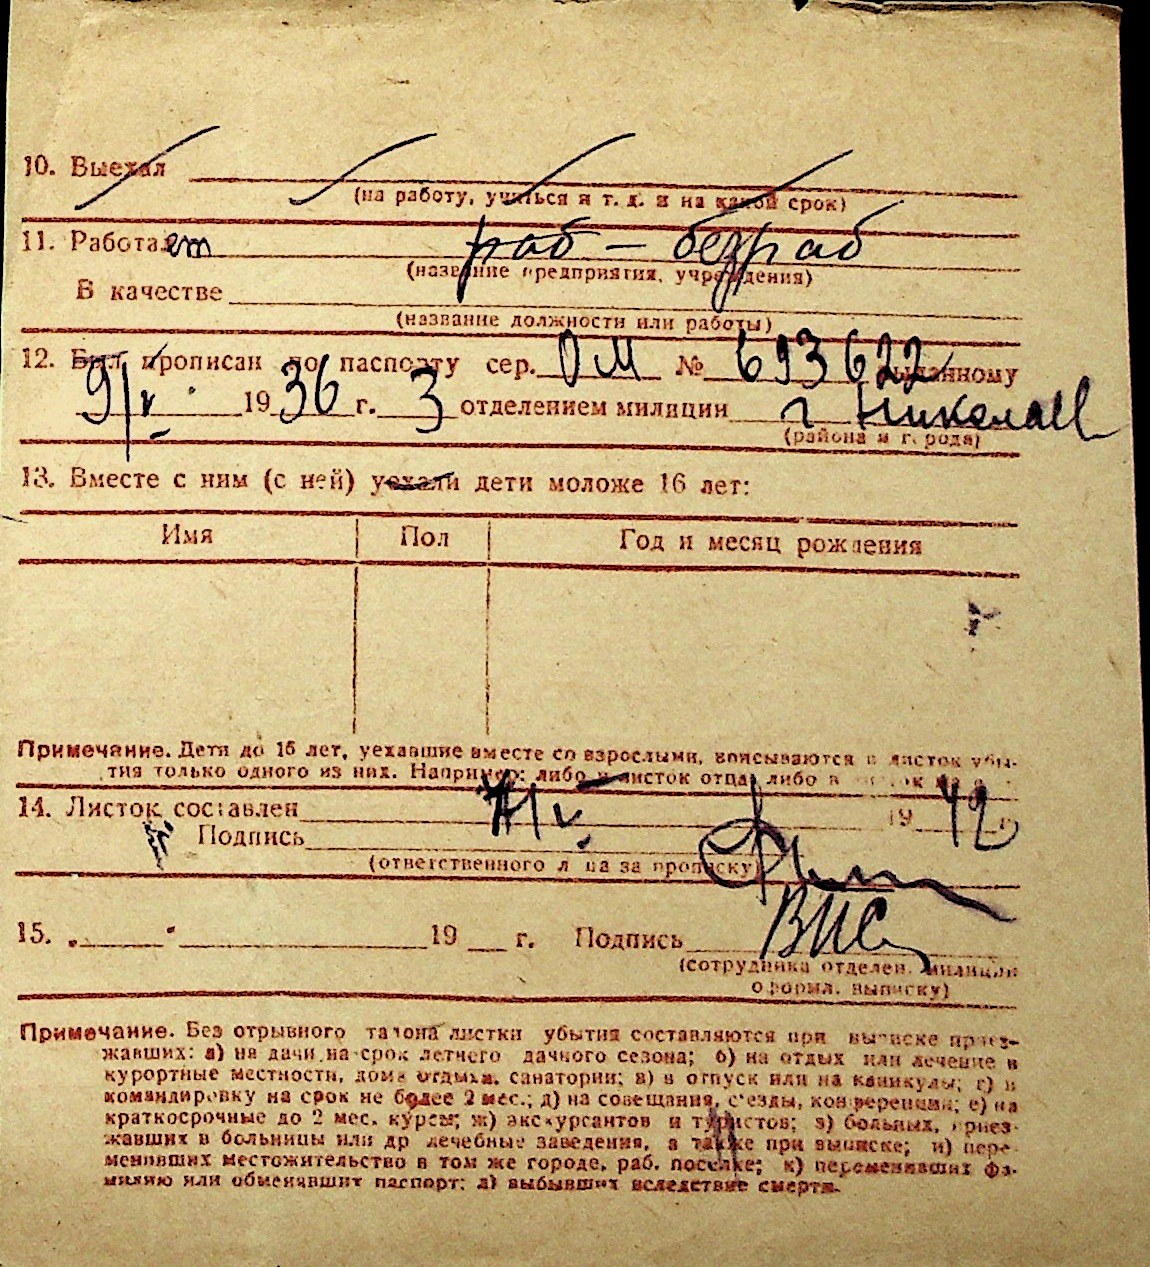 10. Выехал
(на работу, учиться и т. д. и на какой срок)
11. Работает раб - безраб
(название предприятия, учреждения)
В качестве
(название должности или работы)
12. Был прописан по паспорту сер. ОМ № 693622 выданному
9/V 1936 г. 3 отделением милиции г Николаев
(района и города)
13. Вместе с ним (с ней) уехали дети моложе 16 лет:
Имя Пол Год и месяц рождения
Примечание. Дети до 16 лет, уехавшие вместе со взрослыми, вписываются в листок убы-
тия только одного из них. Например: либо в листок отца, либо в листок
14. Листок составлен 1942
Подпись
(ответственного лица за прописку)
15. „ " 19 г. Подпись
(сотрудника отделен. милиции
оформл. выписку)
Примечание. Без отрывного талона листки убытия составляются при выписке приез-
жавших: а) на дачи на срок летнего дачного сезона; б) на отдых или лечение в
курортные местности, дома отдыха, санатории; в) в отпуск или на каникулы; г) в
командировку на срок не более 2 мес.; д) на совещания, съезды, конференции; е) на
краткосрочные до 2 мес. курсы; ж) экскурсантов и туристов; з) больных, приез-
жавших в больницы или др лечебные заведения, а также при выписке; и) пере-
менивших местожительство в том же городе, раб. поселке; к) переменивших фа-
милию или обменявших паспорт; л) выбывших вследствие смерти.